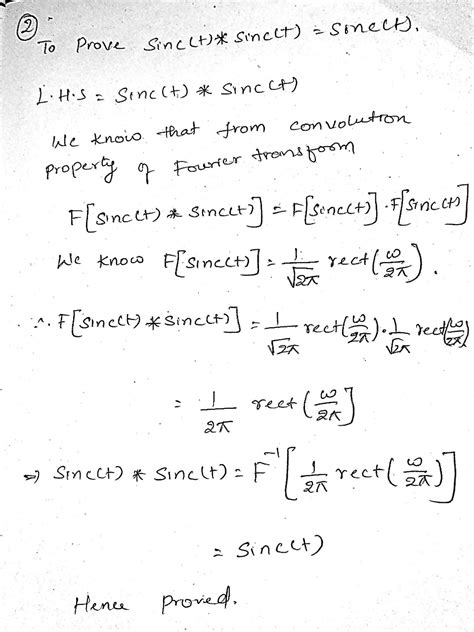 ②
To Prove Sinc(t) * Sinc(t) = Sinc(t).
L.H.S = Sinc(t) * Sinc(t)
We know that from convolution
property of Fourier transform
F[sinc(t) * sinc(t)] = F[sinc(t)] . F[sinc(t)]
We know F[sinc(t)] = 1/√2π rect(ω/2π).
∴ F[sinc(t) * sinc(t)] = 1/√2π rect(ω/2π) . 1/√2π rect(ω/2π)
= 1/2π rect(ω/2π]
⇒ Sinc(t) * Sinc(t) = F⁻¹[1/2π rect(ω/2π)]
= Sinc(t)
Hence proved.